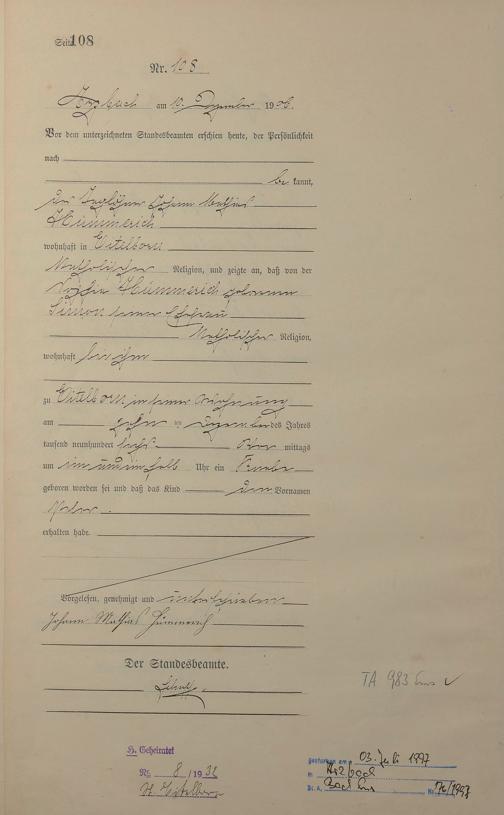 Seite 108
Nr. 108
Arzbach am 10. Dezember 1906.
Vor dem unterzeichneten Standesbeamten erschien heute, der Persönlichkeit
nach
be kannt,
der Taglöhner Johann Mathias
Hümmerich
wohnhaft in Eitelborn
Katholischer Religion, und zeigte an, daß von der
Hümmerich geborenen
Simon seiner Ehefrau
Katholischer Religion,
wohnhaft bei ihm
zu Eitelborn in seiner Wohnung
am zehn ten Dezember des Jahres
tausend neunhundert sechs Vor mittags
um ein Uhr ein Knabe
geboren worden sei und daß das Kind den Vornamen
Peter
erhalten habe.
Vorgelesen, genehmigt und unterschrieben
Johann Mathias Hümmerich
Der Standesbeamte.
TA 983 Ems ✓
H. Geheiratet
Nr. 8 / 1932
St. Eitelborn
gestorben am 03. Juli 1997
in Arzbach
St. A. Bad Ems Nr. 176/1997